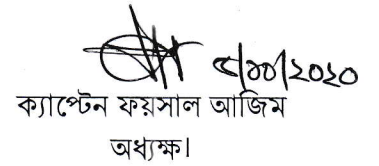 ৫/১০/২০২০
ক্যাপ্টেন ফয়সাল আজিম
অধ্যক্ষ।